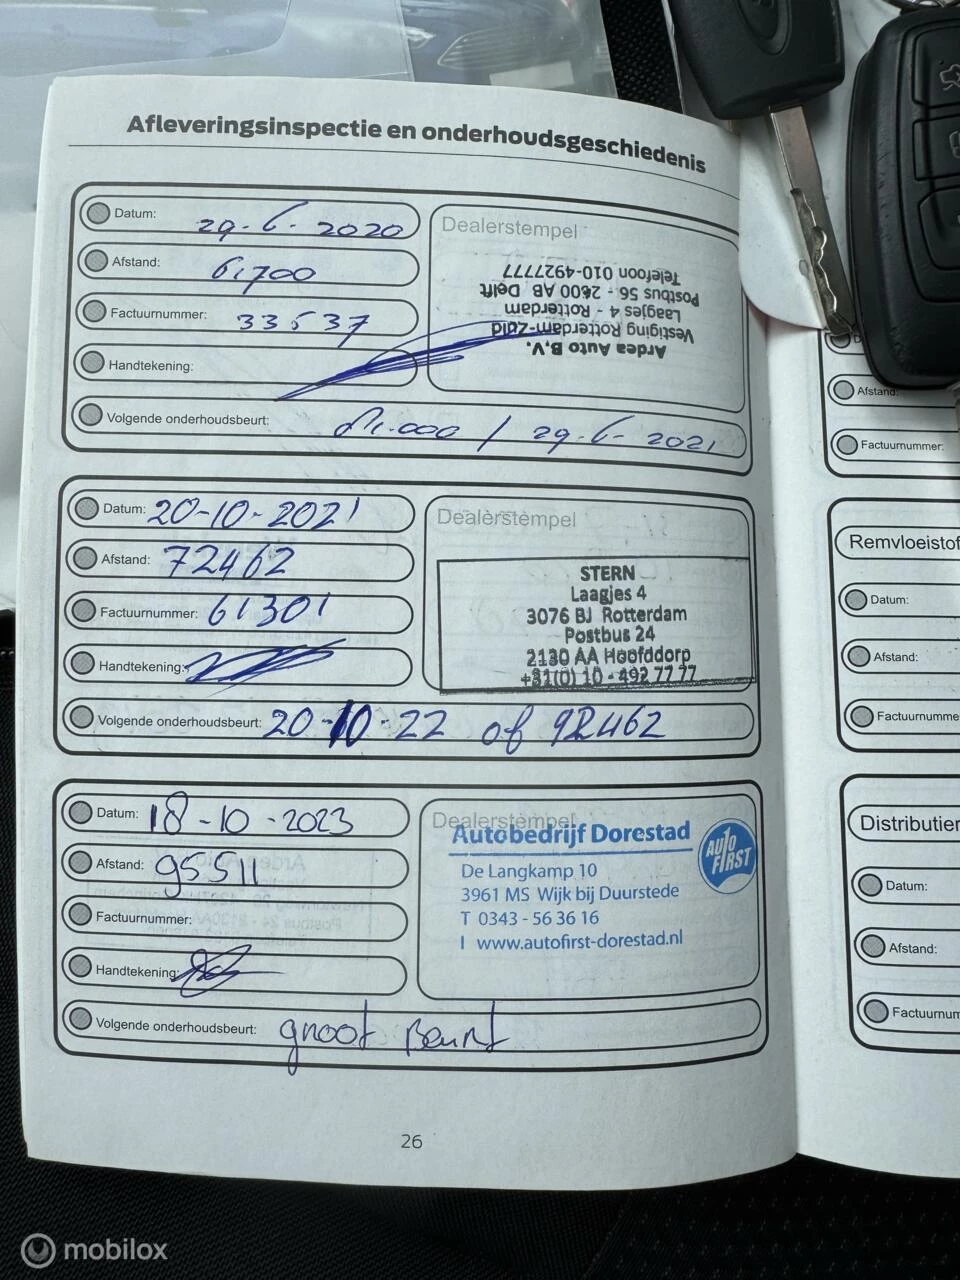 Afleveringsinspectie en onderhoudsgeschiedenis
Datum: 29-6-2020
Afstand: 61,700
Factuurnummer: 33537
Handtekening:
Volgende onderhoudsbeurt: 81.000 / 29-6-2021
Dealerstempel
Ardea Auto B.V.
Vestiging Rotterdam-Zuid
Laagjes 4 - Rotterdam
Postbus 56 - 2600 AB Delft
Telefoon 010-4927777
Datum: 20-10-2021
Afstand: 72462
Factuurnummer: 61301
Handtekening:
Volgende onderhoudsbeurt: 20-10-22 of 92462
Dealerstempel
STERN
Laagjes 4
3076 BJ Rotterdam
Postbus 24
2130 AA Hoofddorp
+31(0) 10 - 492 77 77
Datum: 18-10-2023
Afstand: 95511
Factuurnummer:
Handtekening:
Volgende onderhoudsbeurt: groot Beurt
Dealerstempel
Autobedrijf Dorestad
De Langkamp 10
3961 MS Wijk bij Duurstede
T 0343 - 56 36 16
I www.autofirst-dorestad.nl
AUTO
FIRST
26
Afstand:
Factuurnummer:
Remvloeistof
Datum:
Afstand:
Factuurnumme
Distributier
Datum:
Afstand:
Factuurnum
mobilox